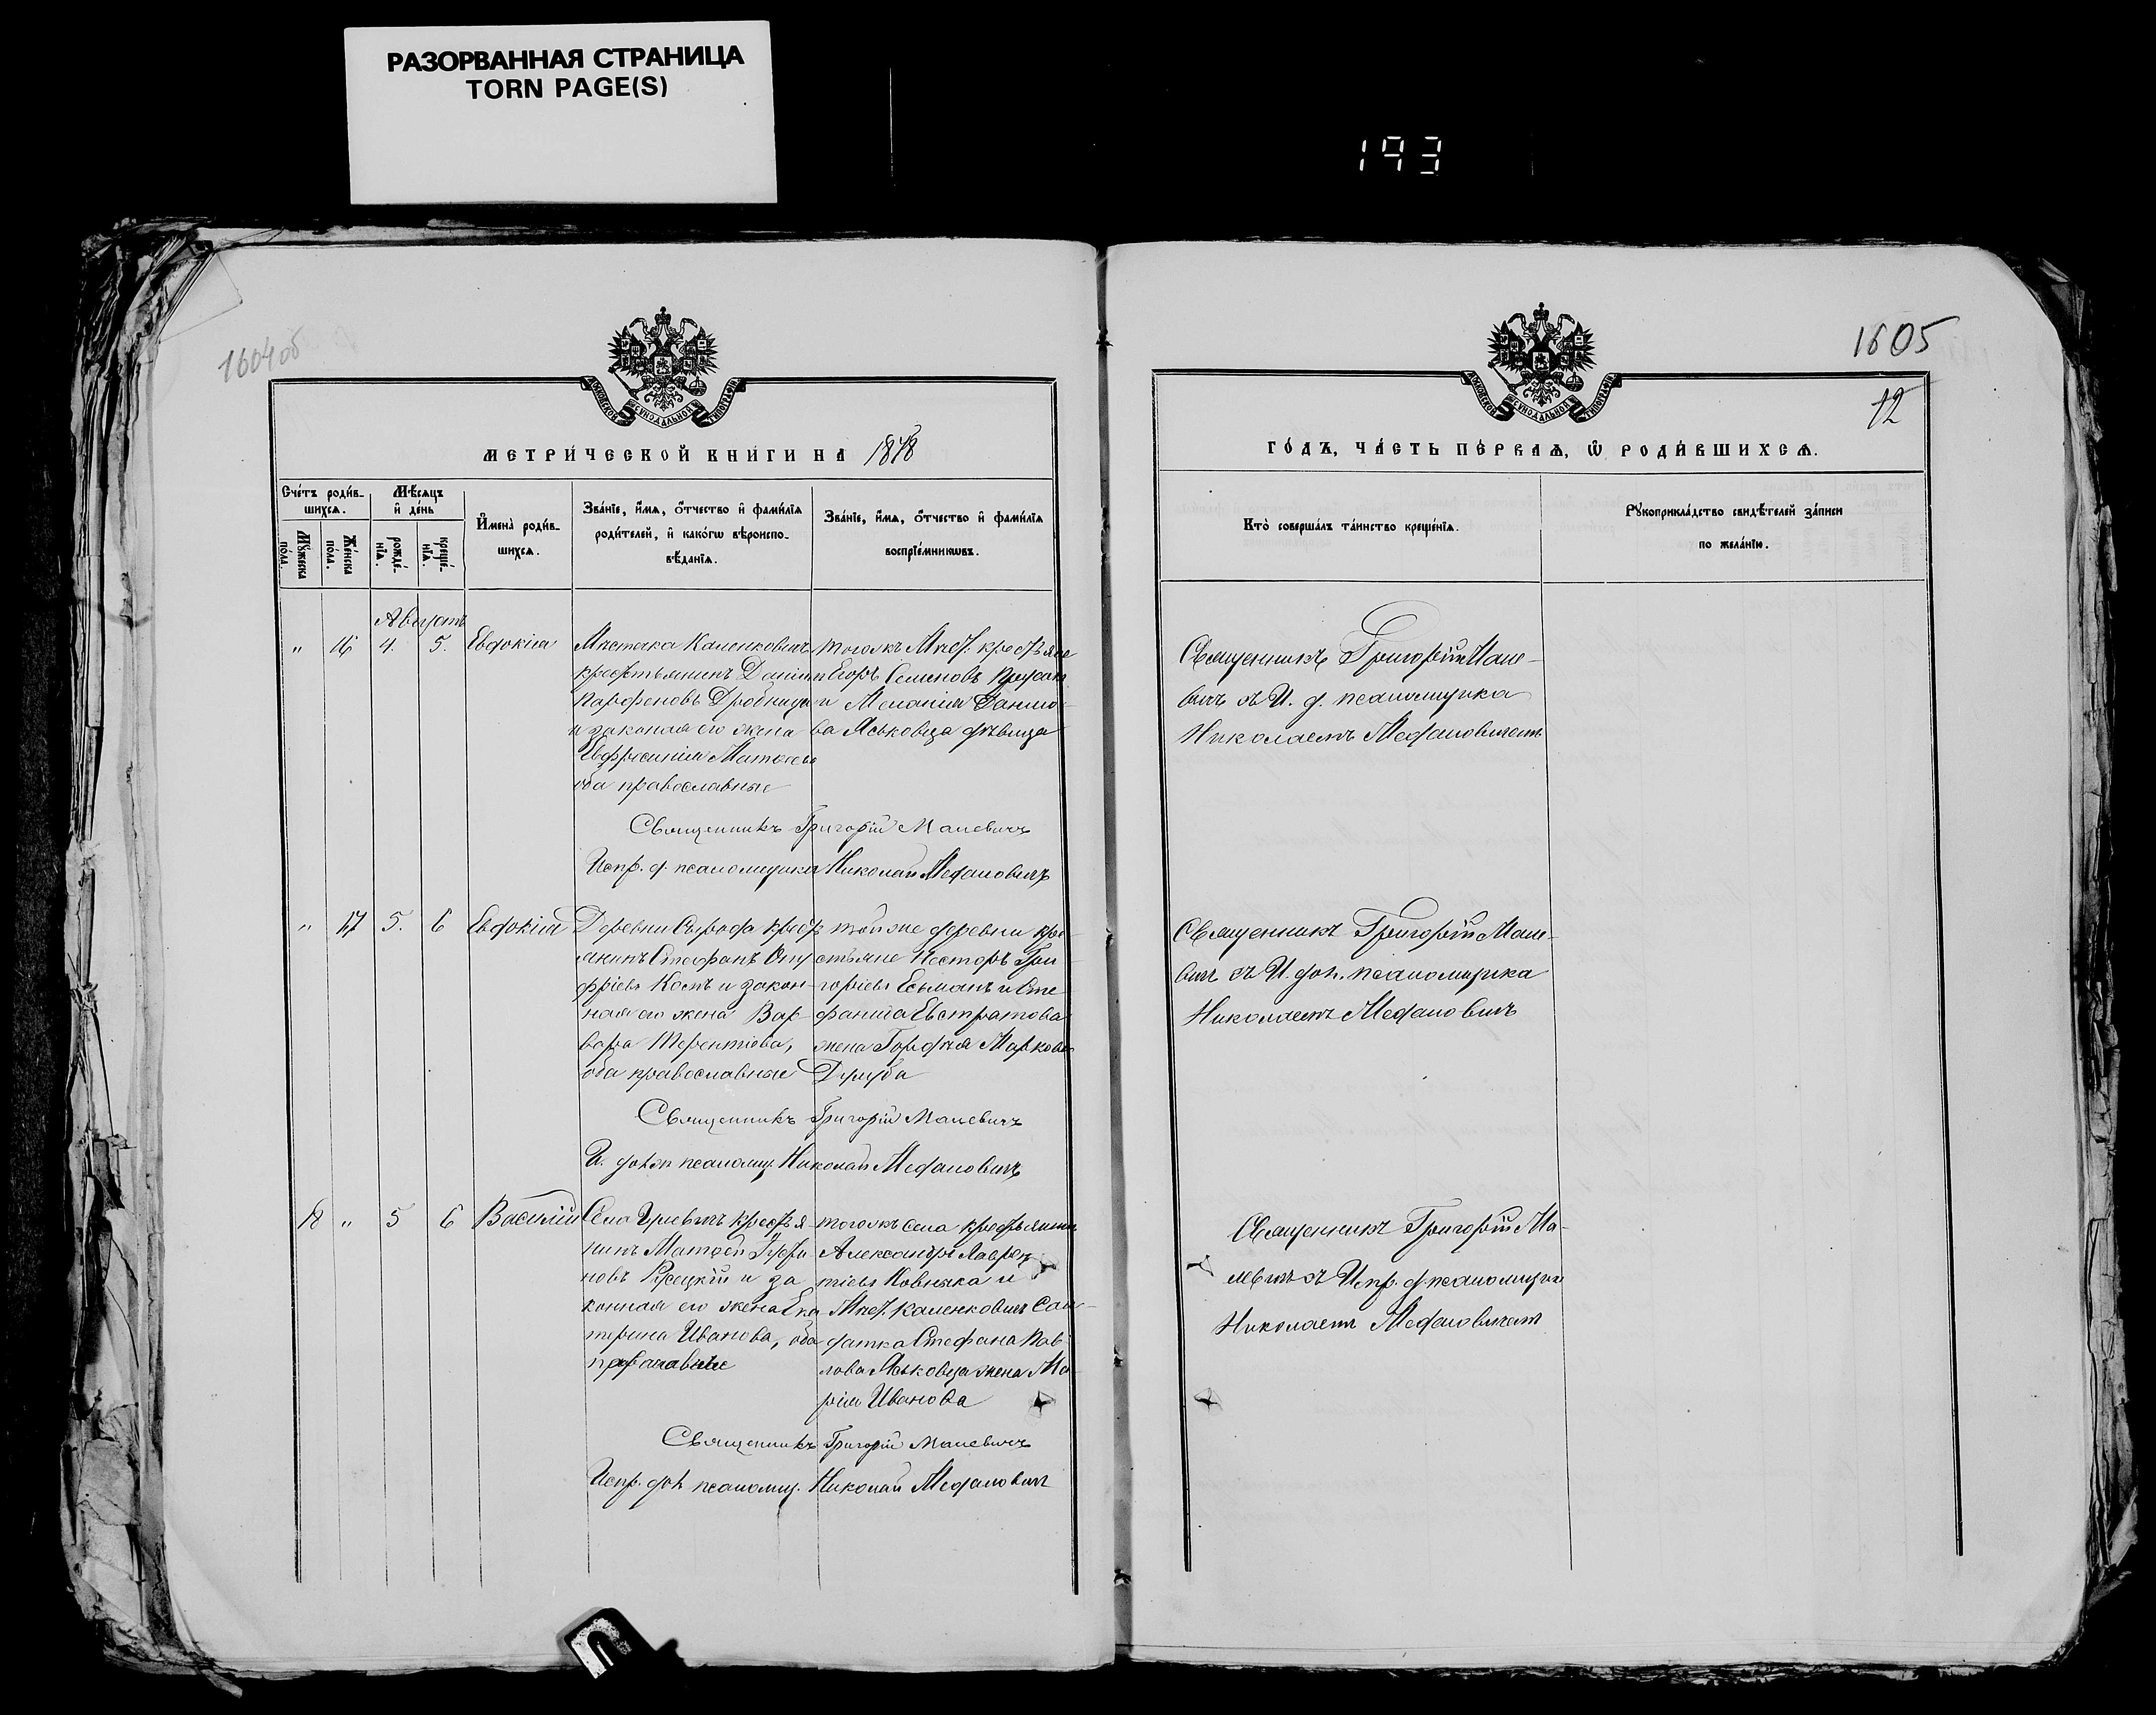 РАЗОРВАННАЯ СТРАНИЦА
TORN PAGE(S)
193
1604об
МЕТРИ́ЧЕСКОЙ КНИ́ГИ НА 1878
Сче́тъ роди́в-
шихсѧ.
Мѣ́сѧцъ
и҆ де́нь
Мꙋ́жеска
по́ла.
Же́нска
по́ла.
рожде́-
нїѧ.
креще́-
нїѧ.
И҆мена̀ роди́в-
шихсѧ.
Зва́нїе, и҆́мѧ, ѻ҆́тчество и҆ фами́лїѧ
роди́телей, и҆ како́гѡ вѣроиспо-
вѣ́данїѧ.
Зва́нїе, и҆́мѧ, ѻ҆́тчество и҆ фами́лїѧ
воспрїе́мникѡвъ.
Августъ
" 16 4. 5. Евдокія
Мѣстечка Каленковичъ
крестьянинъ Даніил
Парфеновъ
и законая его жена
Евфросинія Матѳеева
оба православные
тогожъ Мѣст. крестьяне
Егоръ Семеновъ
и Меланія Данило-
ва Яськовца дѣвица
Священникъ Григорій Малевичъ
Испр. д. псаломщика Николай
" 17 5. 6 Евдокія
Деревни Сырода крест
янинъ Стефанъ Ону
фріевъ и закон-
ная его жена Вар-
вара Терентіова,
оба православные
тойже деревни кре-
стьяне Несторъ Гри
горіевъ Есьманъ и Сте
фанида Евстратова
жена Гордѣя Маркова
Друбa
Священникъ Григорій Малевичъ
И. долж псаломщ. Николай
18 " 5 6 Василій
Села крестья
нинъ Матѳей
новъ и за
конная его жена Ека
терина Иванова, оба
православные
тогожъ села крестьянин
Александръ Лаврен
тіевъ Новицка и
Мѣст. Каленковичъ Сол-
датка Стефана Пав
лова Яськовца жена Ма
рія Иванова
Священникъ Григорій Малевичъ
Испр. дол псаломщ. Николай
1605
12
ГО́ДЪ, ЧА́СТЬ ПЕ́РВАѦ, Ѽ РОДИ́ВШИХСѦ.
Кто̀ соверша́лъ та́инство креще́нїѧ.
Рꙋкоприкла́дство свидѣ́телей за́писи
по жела́нїю.
Священникъ Григорій Мале-
вичъ съ И. д. псаломщика
Николаемъ
Священникъ Григорій Мале-
вичъ съ И. дол. псаломщика
Николаемъ
Священникъ Григорій Ма-
левичъ съ Испр. д. псаломщика
Николаемъ